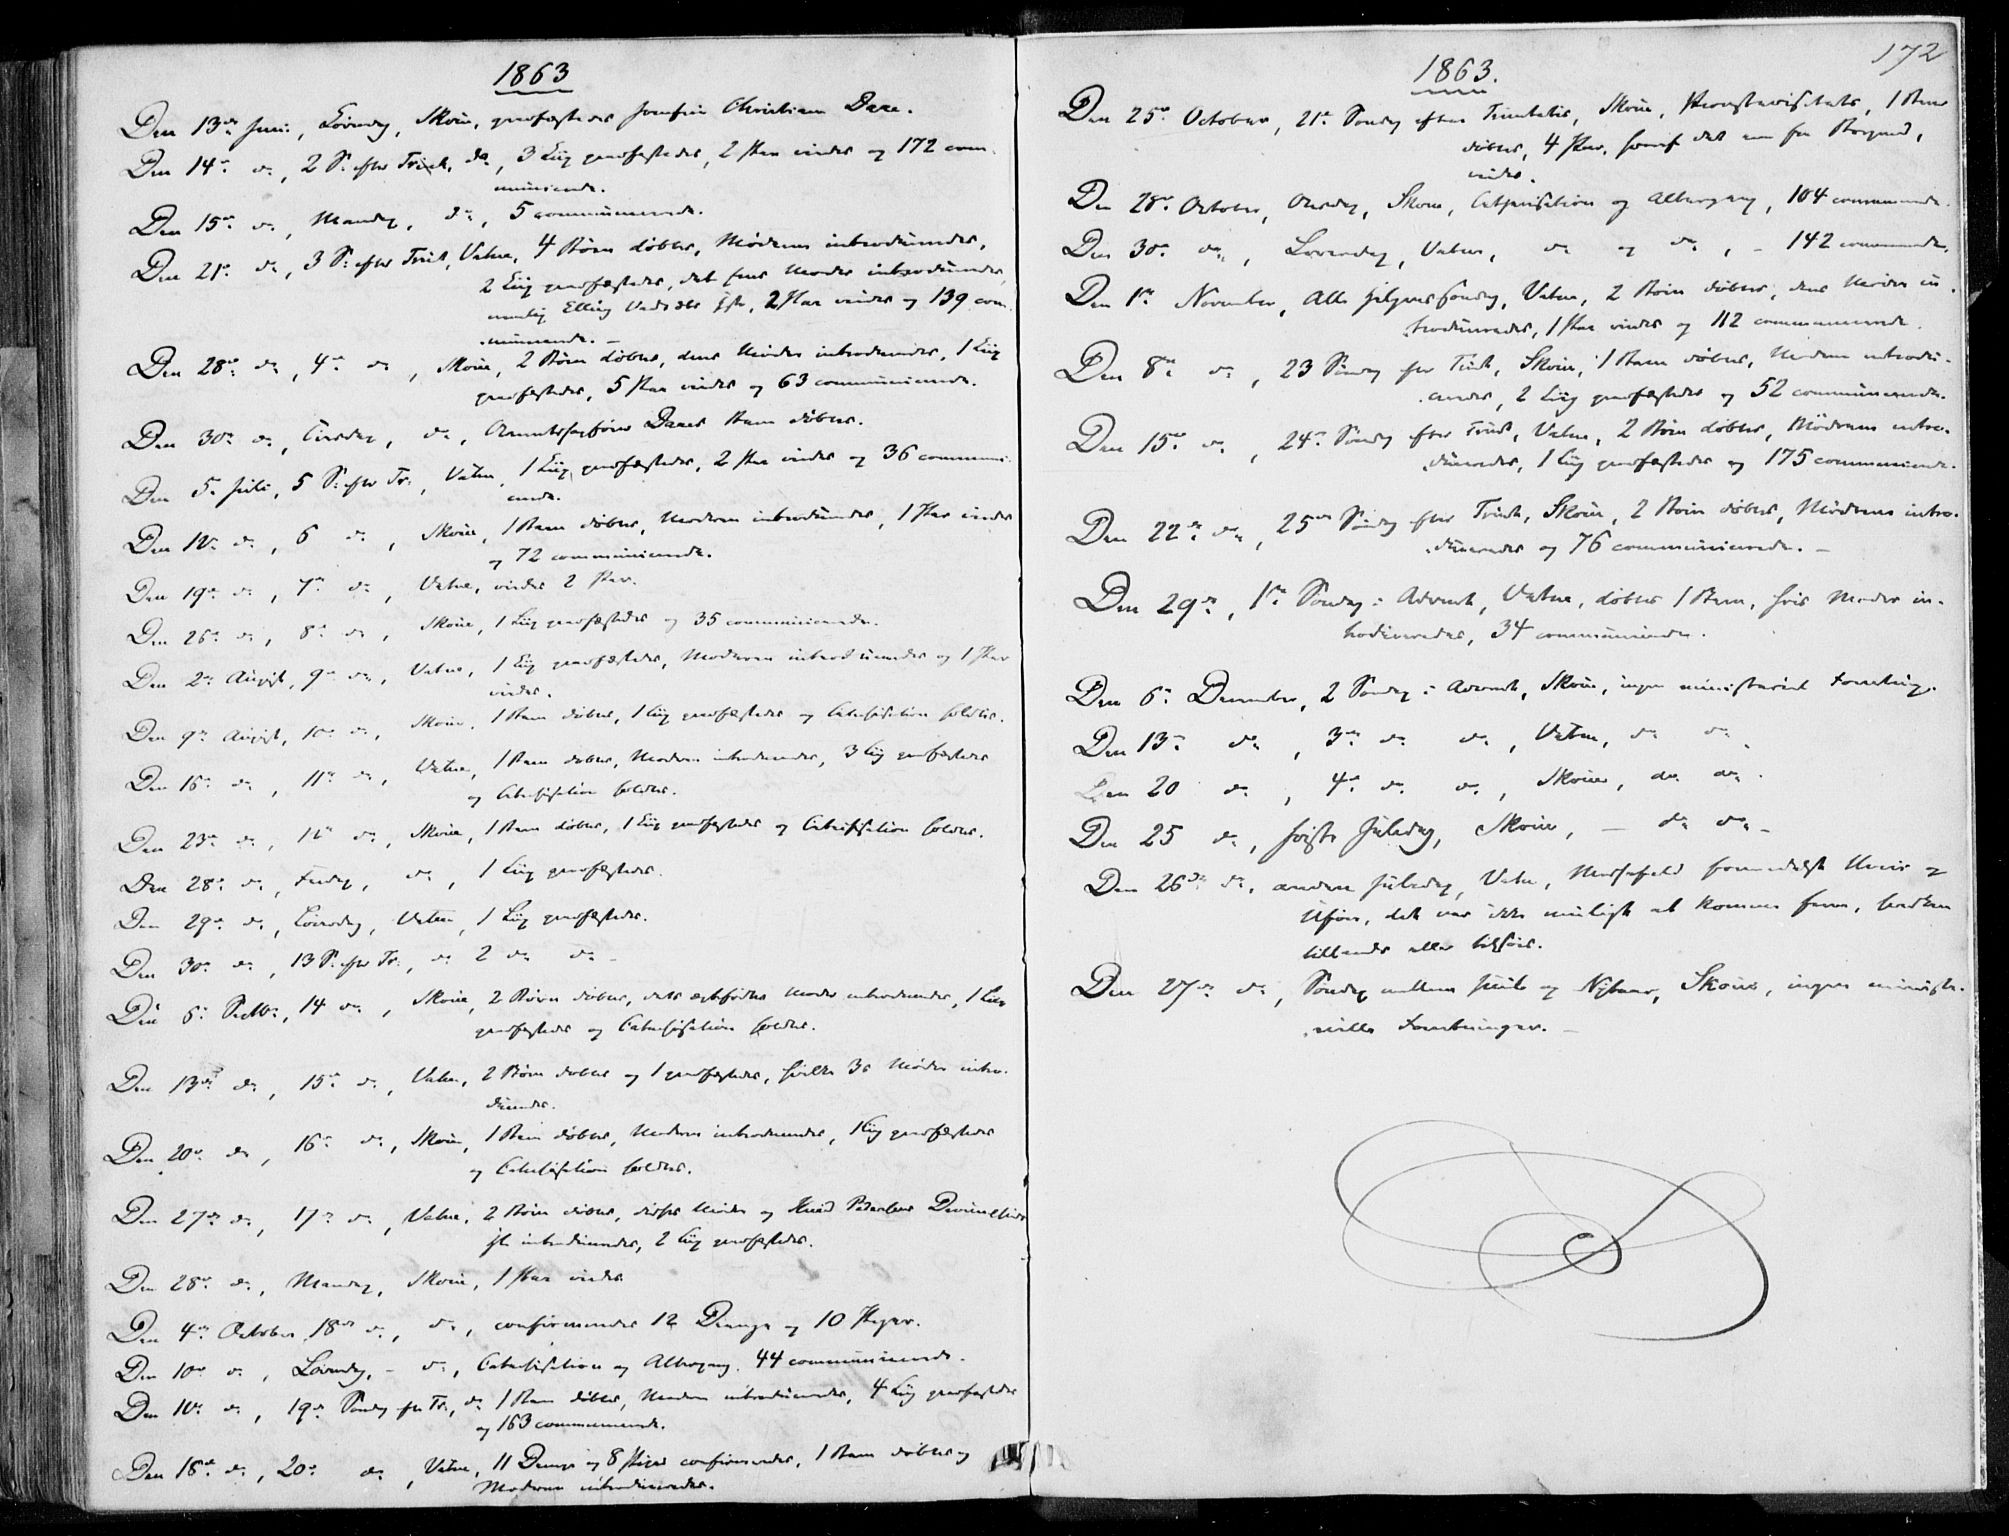 1863
Den 13de Juni, Løverdag, Skoue, jordfæstedes Josefine Christiane Daae.
Den 14de do, 2 S. efter Trinit. do, 3 Liig jordfæstedes, 2 Par viede og 172 com-
municerede.
Den 15de do, Mandag, do, 5 communicerede.
Den 21de do, 3 S. efter Trinit, Vatne, 4 Børn døbtes, Mødrene introduceredes,
2 Liig jordfæstedes, det enes Moder introduceredes,
nemlig Elling, 2 Par viedes og 139 com-
municerede. –
Den 28de do, 4de do, Skoue, 2 Børn døbtes, deres Mødre introduceredes, 1 Liig
jordfæstedes, 5 Par viedes og 63 communicerede.
Den 30de do, Tirsdag, do, Daaes Barn døbtes.
Den 5te Juli, 5 S. efter Tr., Vatne, 1 Liig jordfæstedes, 2 Par viedes og 36 communi-
cerede.
Den 12te do, 6 do, Skoue, 1 Barn døbtes, Moderen introduceredes, 1 Par viedes
og 72 communicerede.
Den 19de do, 7de do, Vatne, viedes 2 Par.
Den 26de do, 8de do, Skoue, 1 Liig jordfæstedes og 35 communicerede.
Den 2den August, 9de do, Vatne, 1 Liig jordfæstedes, Moderen introduceredes og 1 Par
viedes.
Den 9de August, 10de do, Skoue, 1 Barn døbtes, 1 Liig jordfæstedes og Catechisation holdtes.
Den 16de do, 11te do, Vatne, 1 Barn døbtes, Moderen introduceredes, 3 Liig jordfæstedes
og Catechisation holdtes.
Den 23de do, 12te do, Skoue, 1 Barn døbtes, 1 Liig jordfæstedes og Catechisation holdtes.
Den 28de do, Fredag, do, 1 Liig jordfæstedes.
Den 29de do, Løverdag, Vatne, 1 Liig jordfæstedes.
Den 30te do, 13 S. efter Tr., do 2 do do –
Den 6te Septbr., 14 do, Skoue, 2 Børn døbtes, det ægtefødtes Moder introduceredes, 1 Liig
jordfæstedes og Catechisation holdtes.
Den 13de do, 15de do, Vatne, 2 Børn døbtes og 1 jordfæstedes, hvilke 3s Mødre intro-
duceredes.
Den 20de do, 16de do, Skoue, 1 Barn døbtes, Moderen introduceredes, 1 Liig jordfæstedes
og Catechisation holdtes.
Den 27de do, 17de do, Vatne, 2 Børn døbtes, disses Mødre og Knud Pedersens
introduceredes, 2 Liig jordfæstedes.
Den 28de do, Mandag, Skoue, 1 Par viedes
Den 4de October 18de do, do, confirmeredes 12 Drenge og 10 Piger.
Den 10de do, Løverdag, – do, Catechisation og Altergang. 44 communicerede.
Den 11te do, 19de Søndag efter Tr., do 1 Barn døbtes, Moderen introduceredes, 4 Liig jordfæstedes
og 163 communicerede.
Den 18de do, 20de do, Vatne, 11 Drenge og 8 Piger confirmeredes, 1 Barn døbtes og
Moderen introduceredes.
172
1863.
Den 25de October, 21de Søndag efter Trinitatis, Skoue, Provstevisitats, 1 Barn
døbtes, 4 Par, hvoraf det ene fra Borgund,
viedes.
Den 28de October, Onsdag, Skoue, Catechisation og Altergang, 104 communicerede.
Den 30te do, Løverdag, Vatne, do og do, – 142 communicerede.
Den 1ste November, Alle Helgens Søndag, Vatne, 2 Børn døbtes, deres Mødre in-
troduceredes, 1 Par viedes og 112 communicerede.
Den 8de do, 23 Søndag efter Trinit, Skoue, 1 Barn døbtes, Moderen introdu-
ceredes, 2 Liig jordfæstedes og 52 communicerede.
Den 15de do, 24de Søndag efter Trinit, Vatne, 2 Børn døbtes, Mødrene intro-
duceredes, 1 Liig jordfæstedes og 175 communicerede.
Den 22de do, 25de Søndag efter Trinit, Skoue, 2 Børn døbtes, Mødrene intro-
duceredes og 76 communicerede. –
Den 29de, 1ste Søndag i Advent, Vatne, døbtes 1 Barn, hvis Moder in-
troduceredes, 34 communicerede.
Den 6te December, 2 Søndag i Advent, Skoue, ingen ministeriel Forretning.
Den 13de do, 3die do do, Vatne, do do.
Den 20 do, 4de do do, Skoue, do do.
Den 25 do, første Juledag, Skoue, – do do –
Den 26de do, anden Juledag, Vatne, Messefald formedelst Uveir og
Uføre, det var ikke muligt at komme frem, hverken
tillands eller tilsøes.
Den 27de do, Søndag mellem Juul og Nytaar, Skoue, ingen ministe-
rielle Forretninger. –